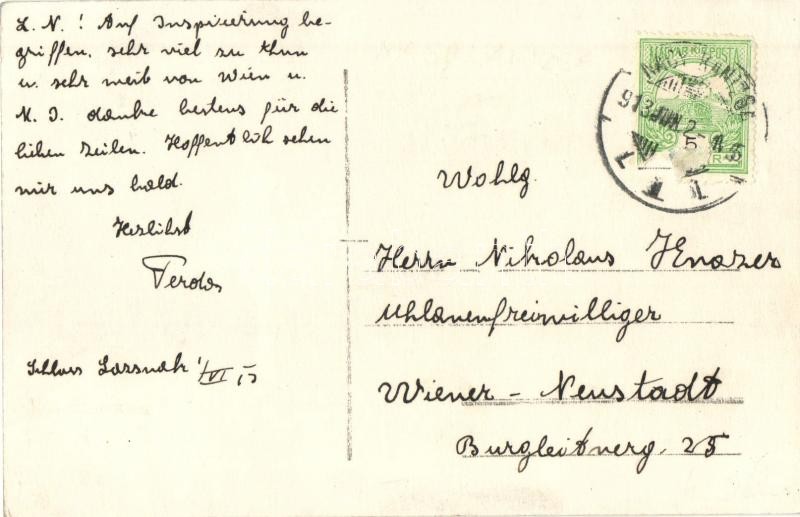 L. N.! Auf Inspicierung be-
griffen, sehr viel zu thun
u. sehr weit von Wien u.
M. I. danke bestens für die
lieben Zeilen. Hoffentlich sehen
wir uns bald.
Herzlichst
Schloss
1/VI 13
MAGYAR KIR. POSTA
NAGY-KANIZSA
913 JUN 2
Wohlg.
Herrn Nikolaus
Uhlanenfreiwilliger
Wiener-Neustadt
25